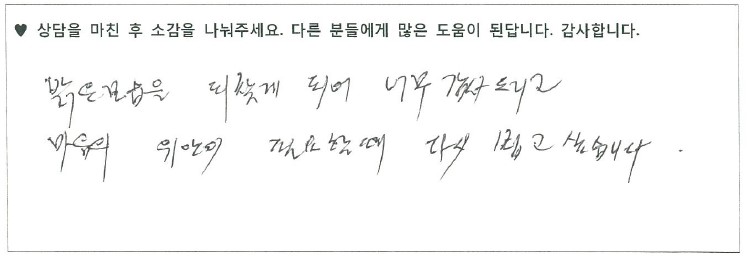 ♥ 상담을 마친 후 소감을 나눠주세요. 다른 분들에게 많은 도움이 된답니다. 감사합니다.
밝은모습을 되찾게 되어 너무 감사드리고
마음의 위안이 필요할때 다시 뵙고 싶습니다.